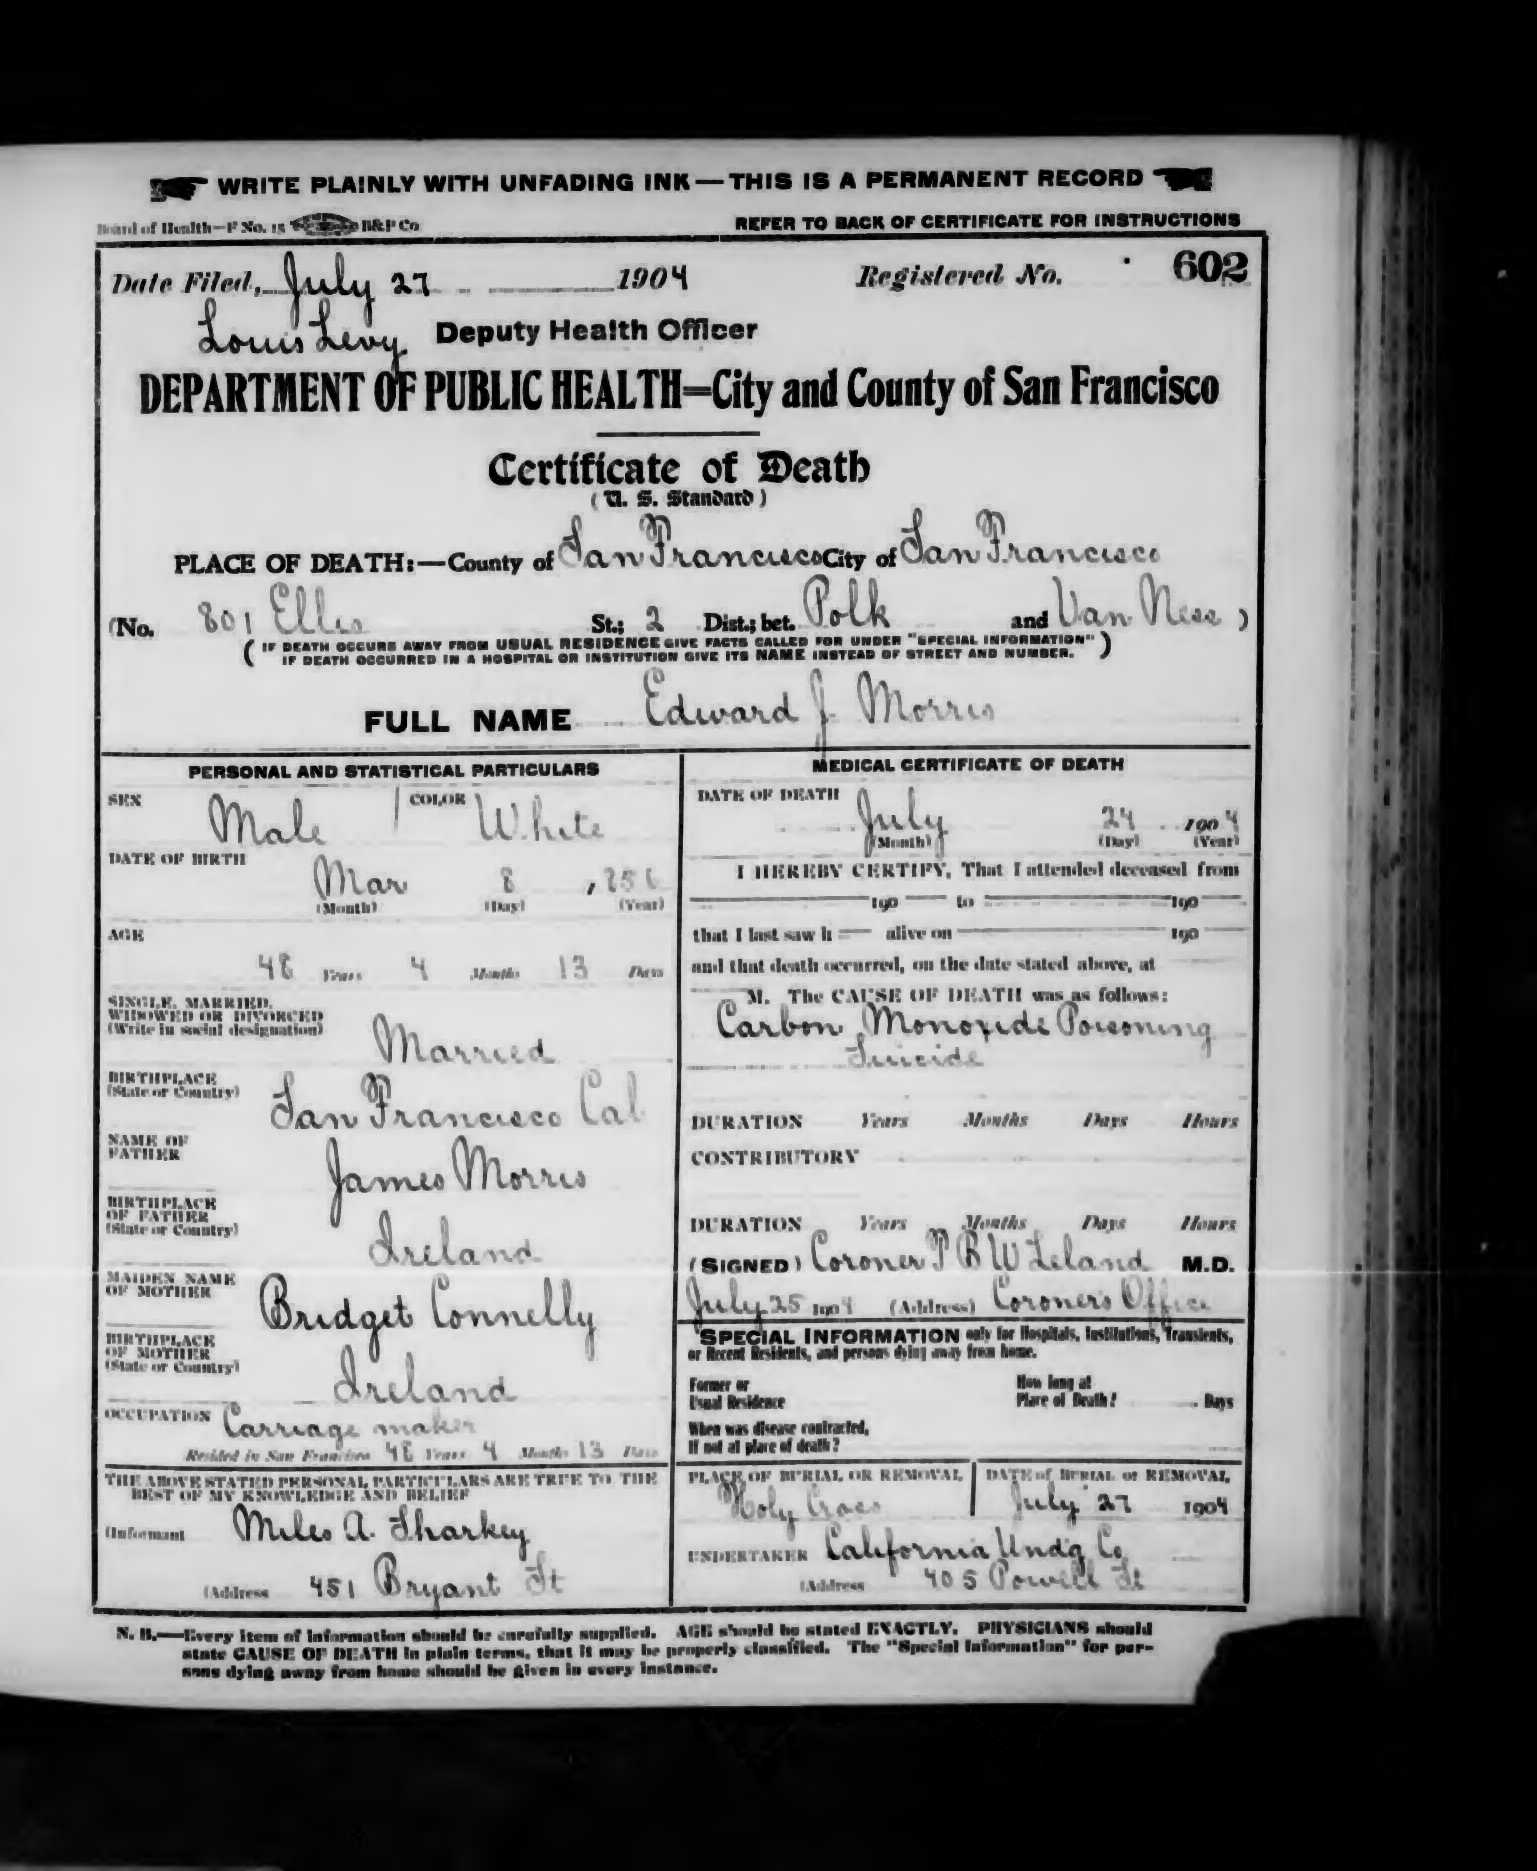 WRITE PLAINLY WITH UNFADING INK—THIS IS A PERMANENT RECORD
Board of Health—F No. 15 B&P Co
REFER TO BACK OF CERTIFICATE FOR INSTRUCTIONS
Date Filed, July 27 1904 Registered No. 602
Louis Levy Deputy Health Officer
DEPARTMENT OF PUBLIC HEALTH=City and County of San Francisco
Certificate of Death
(U. S. Standard)
PLACE OF DEATH:—County of San Francisco City of San Francisco
(No. 801 Ellis St.; 2 Dist.; bet. Polk and Van Ness)
(IF DEATH OCCURS AWAY FROM USUAL RESIDENCE GIVE FACTS CALLED FOR UNDER "SPECIAL INFORMATION"
IF DEATH OCCURRED IN A HOSPITAL OR INSTITUTION GIVE ITS NAME INSTEAD OF STREET AND NUMBER.)
FULL NAME Edward J. Morris
PERSONAL AND STATISTICAL PARTICULARS
SEX Male COLOR White
DATE OF BIRTH
Mar 8, 1856
(Month) (Day) (Year)
AGE
48 Years 4 Months 13 Days
SINGLE, MARRIED,
WIDOWED OR DIVORCED
(Write in social designation)
Married
BIRTHPLACE
(State or Country)
San Francisco Cal
NAME OF
FATHER
James Morris
BIRTHPLACE
OF FATHER
(State or Country)
Ireland
MAIDEN NAME
OF MOTHER
Bridget Connelly
BIRTHPLACE
OF MOTHER
(State or Country)
Ireland
OCCUPATION Carriage maker
Resided in San Francisco 48 Years 4 Months 13 Days
THE ABOVE STATED PERSONAL PARTICULARS ARE TRUE TO THE
BEST OF MY KNOWLEDGE AND BELIEF
(Informant Miles A. Sharkey
(Address 451 Bryant St
MEDICAL CERTIFICATE OF DEATH
DATE OF DEATH
July 24 1904
(Month) (Day) (Year)
I HEREBY CERTIFY, That I attended deceased from
190 to 190
that I last saw h alive on 190
and that death occurred, on the date stated above, at
M. The CAUSE OF DEATH was as follows:
Carbon Monoxide Poisoning
Suicide
DURATION Years Months Days Hours
CONTRIBUTORY
DURATION Years Months Days Hours
(SIGNED) Coroner T B W Leland M.D.
July 25 1904 (Address) Coroner's Office
SPECIAL INFORMATION only for Hospitals, Institutions, Transients,
or Recent Residents, and persons dying away from home.
Former or
Usual Residence
How long at
Place of Death? Days
When was disease contracted,
If not at place of death?
PLACE OF BURIAL OR REMOVAL
Holy Cross
DATE of BURIAL or REMOVAL
July 27 1904
UNDERTAKER California Undg Co
(Address 405 Powell St
N. B.—Every item of information should be carefully supplied. AGE should be stated EXACTLY. PHYSICIANS should
state CAUSE OF DEATH in plain terms, that it may be properly classified. The "Special Information" for per-
sons dying away from home should be given in every instance.